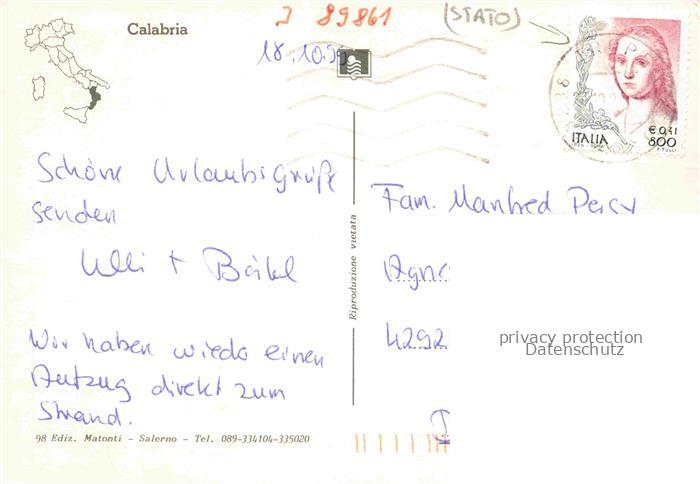 J 89861
(STATO)
Calabria
18.10.99
ITALIA
€ 0,41
800
Schöne Urlaubsgrüße
senden
Ulli +
Wir haben wieder einen
Aufzug direkt zum
Strand.
98 Ediz. Matonti - Salerno - Tel. 089-334104-335020
Riproduzione vietata
Fam. Manfred Percy
Agn
4292
privacy protection
Datenschutz